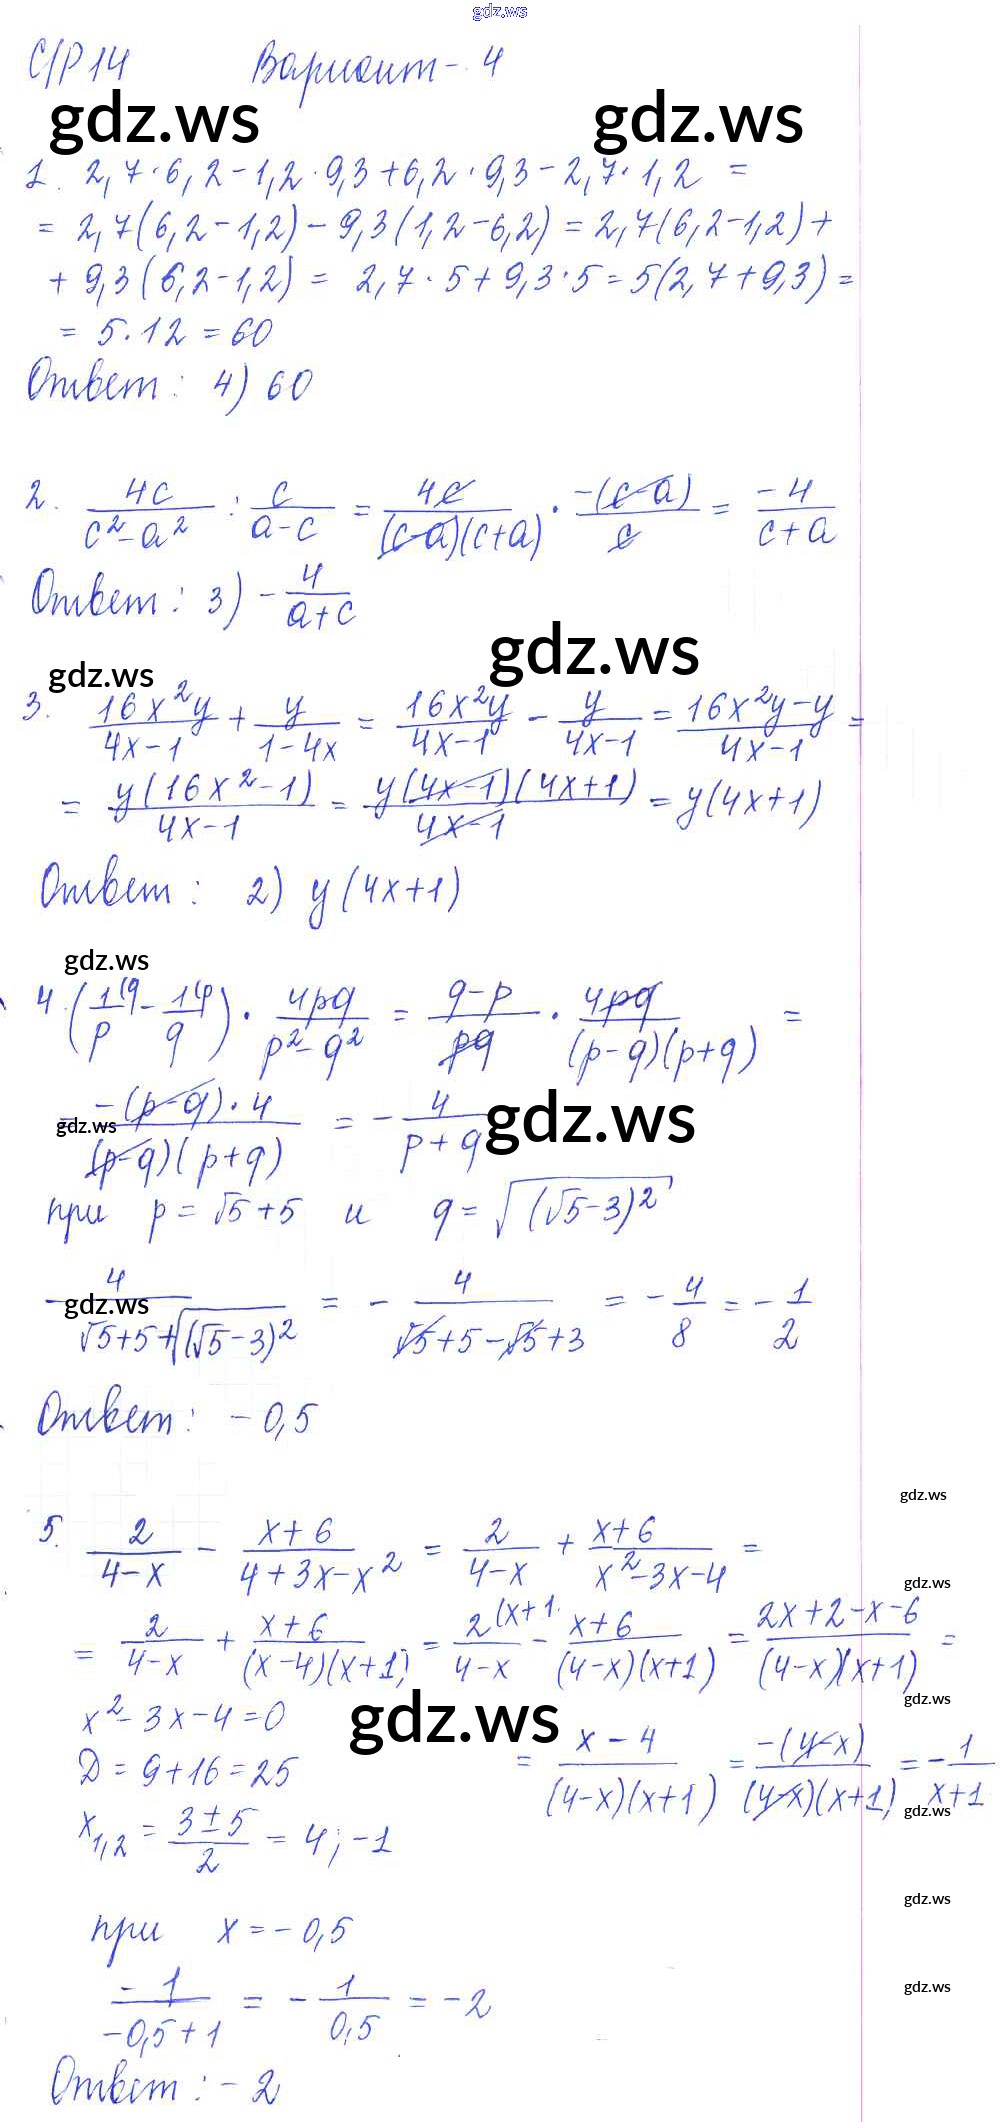 gdz.ws
С/Р 14 Вариант - 4
gdz.ws gdz.ws
1. 2,7·6,2-1,2·9,3+6,2·9,3-2,7·1,2 =
= 2,7(6,2-1,2)-9,3(1,2-6,2)=2,7(6,2-1,2)+
+ 9,3(6,2-1,2) = 2,7·5+9,3·5=5(2,7+9,3)=
= 5·12 = 60
Ответ: 4) 60
2. 4c/(c²-a²) : c/(a-c) = 4c/((c-a)(c+a)) · -(c-a)/c = -4/(c+a)
Ответ: 3) -4/(a+c)
gdz.ws
gdz.ws
3. 16x²y/(4x-1) + y/(1-4x) = 16x²y/(4x-1) - y/(4x-1) = (16x²y-y)/(4x-1) =
= y(16x²-1)/(4x-1) = y(4x-1)(4x+1)/(4x-1) = y(4x+1)
Ответ: 2) y(4x+1)
gdz.ws
4. (1(q/p - 1(p/q) · 4pq/(p²-q²) = (q-p)/pq · 4pq/((p-q)(p+q)) =
= -(p-q)·4/((p-q)(p+q)) = -4/(p+q)
gdz.ws gdz.ws
при p=√5+5 и q=√(√5-3)²
-4/(√5+5+√(√5-3)²) = -4/(√5+5-√5+3) = -4/8 = -1/2
gdz.ws
Ответ: -0,5
gdz.ws
5. 2/(4-x) - (x+6)/(4+3x-x²) = 2/(4-x) + (x+6)/(x²-3x-4) =
gdz.ws
= 2/(4-x) + (x+6)/((x-4)(x+1)) = 2(x+1/(4-x) - (x+6)/((4-x)(x+1)) = (2x+2-x-6)/((4-x)(x+1)) =
gdz.ws
x²-3x-4=0
gdz.ws
= (x-4)/((4-x)(x+1)) = -(4-x)/((4-x)(x+1)) = -1/(x+1)
D = 9+16=25
gdz.ws
x₁,₂ = (3±5)/2 = 4; -1
gdz.ws
при x=-0,5
gdz.ws
-1/(-0,5+1) = -1/0,5 = -2
Ответ: -2